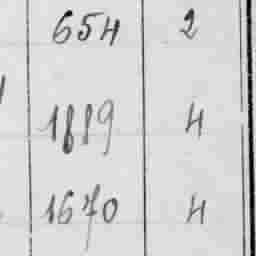 654 2
1889 4
1670 4